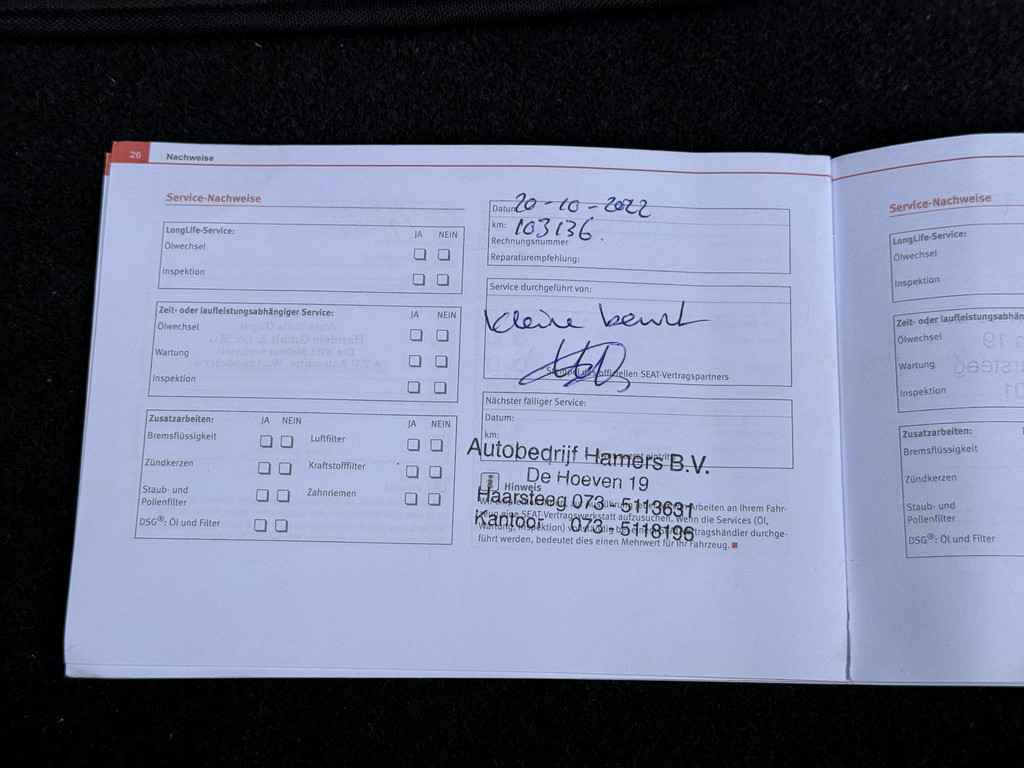 26 Nachweise
Service-Nachweise
LongLife-Service:
JA NEIN
Ölwechsel
Inspektion
Zeit- oder laufleistungsabhängiger Service:
JA NEIN
Ölwechsel
Wartung
Inspektion
Zusatzarbeiten:
JA NEIN
JA NEIN
Bremsflüssigkeit
Luftfilter
Zündkerzen
Kraftstofffilter
Staub- und
Pollenfilter
Zahnriemen
DSG®: Öl und Filter
Datum 20-10-2022
km: 103136.
Rechnungsnummer
Reparaturempfehlung:
Service durchgeführt von:
kleine beurt
offiziellen SEAT-Vertragspartners
Nächster fälliger Service:
Datum:
km:
Autobedrijf Hamers B.V.
De Hoeven 19
Hinweis
Haarsteeg 073 - 5113631
Kantoor 073 - 5118196
arbeiten an Ihrem Fahr-
zeug eine SEAT-Vertragswerkstatt aufzusuchen. Wenn die Services (Öl,
Wartung, Inspektion) vollständig durchge-
führt werden, bedeutet dies einen Mehrwert für Ihr Fahrzeug.
Service-Nachweise
LongLife-Service:
Ölwechsel
Inspektion
Zeit- oder laufleistungsab
Ölwechsel
Wartung
Inspektion
Zusatzarbeiten:
Bremsflüssigkeit
Zündkerzen
Staub- und
Pollenfilter
DSG®: Öl und Filter